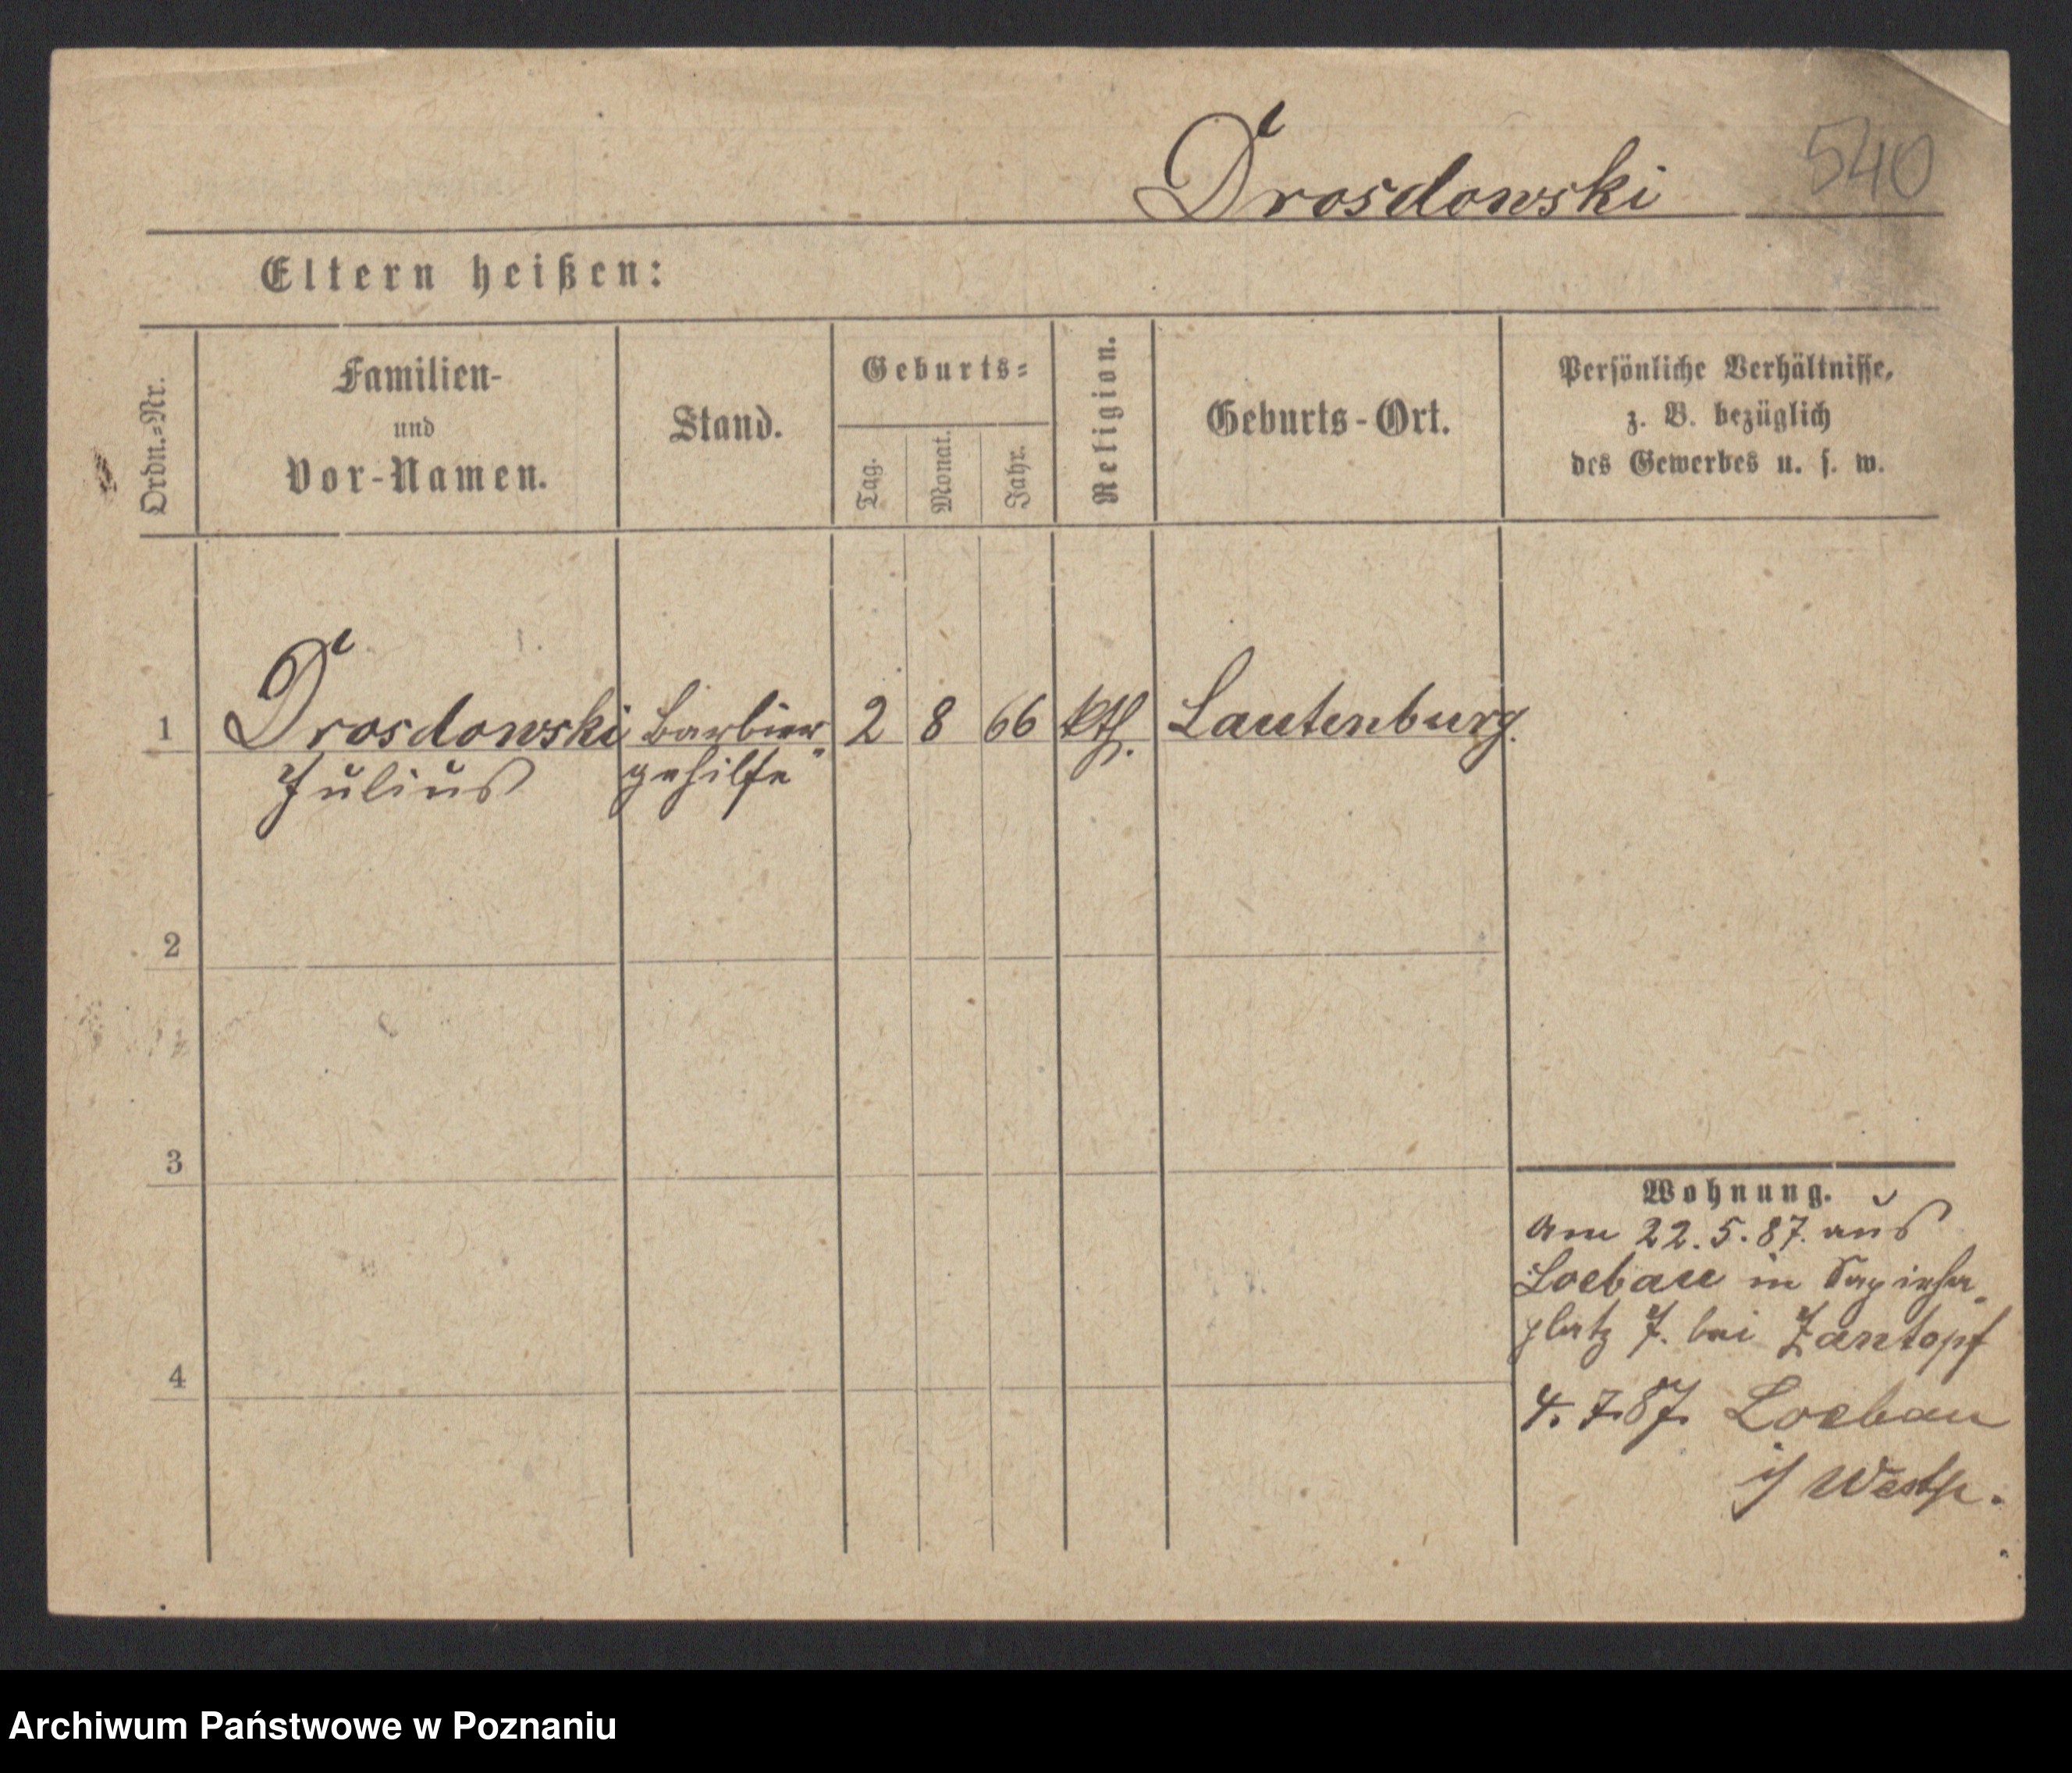 Drosdowski 540
Eltern heißen:
Ordn.-Nr.
Familien-
und
Vor-Namen.
Stand.
Geburts-
Tag.
Monat.
Jahr.
Religion.
Geburts-Ort.
Persönliche Verhältnisse,
z. B. bezüglich
des Gewerbes u. s. w.
1 Drosdowski Barbier 2 8 66 kth. Lautenburg.
Julius gehilfe
2
3
4
Wohnung.
Am 22.5.87. aus
Loebau in Sapieha
platz 7. bei Zantopf
4. 7.87. Loebau
i/ Westp.
Archiwum Państwowe w Poznaniu